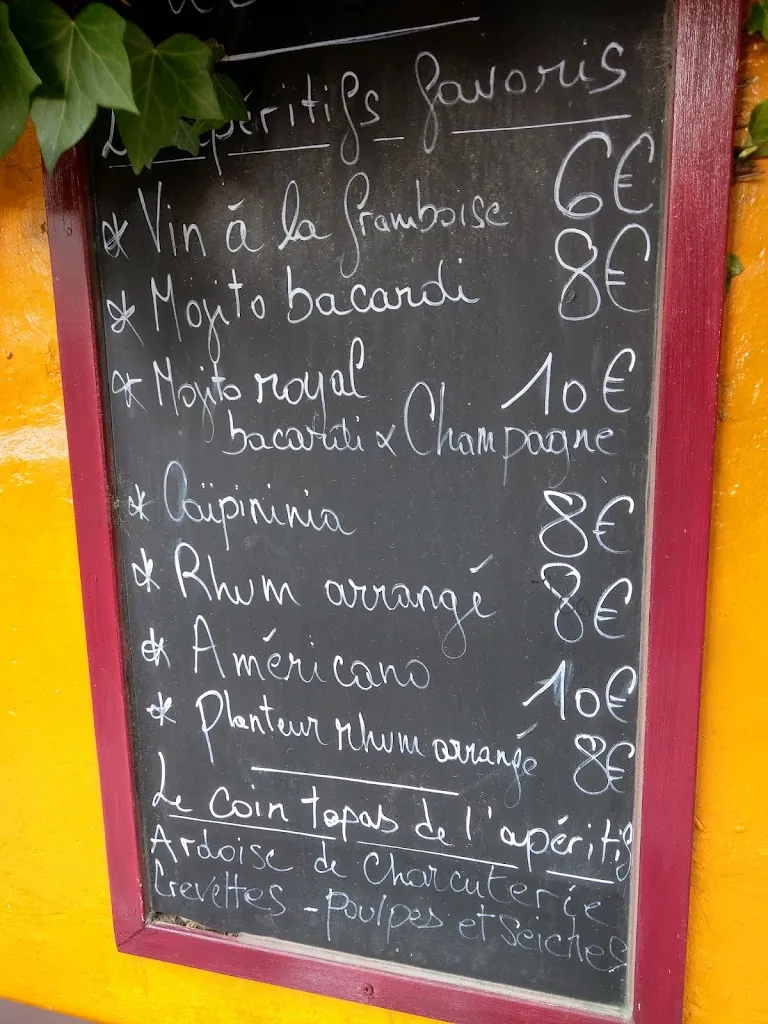 apéritifs favoris
* Vin à la framboise 6€
* Mojito bacardi 8€
* Mojito royal 10€
bacardi & Champagne
* Caïpirinia 8€
* Rhum arrangé 8€
* Américano 10€
* Planteur rhum arrangé 8€
Le coin tapas de l'apéritif
Ardoise de charcuterie
Crevettes - poulpes et Seiches